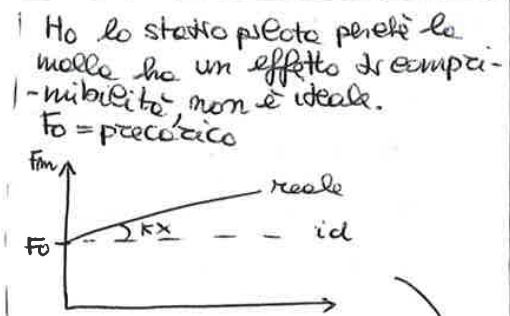 Ho lo stadio pilota perchè la
molla ha un effetto di compri-
-mibilità, non è ideale.
Fo = precárico
Fm
reale
Kx
Fo
id